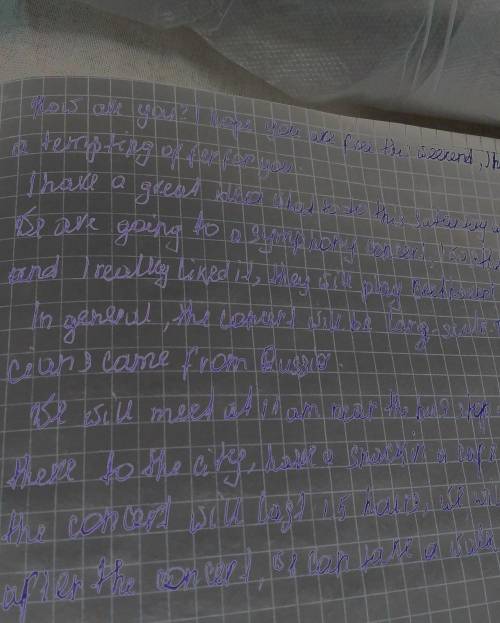 How are you? I hope you are free this weekend, I h
a tempting offer for you.
I have a great idea what to do this saturday
We are going to a symphony concert, I
and I really liked it, they will play
In general, the concert will be long,
cians came from Russia.
We will meet at 11 am near the bus stop
there to the city, have a snack in a caf
the concert will last 1.5 hours, we wi
after the concert, we can take a walk